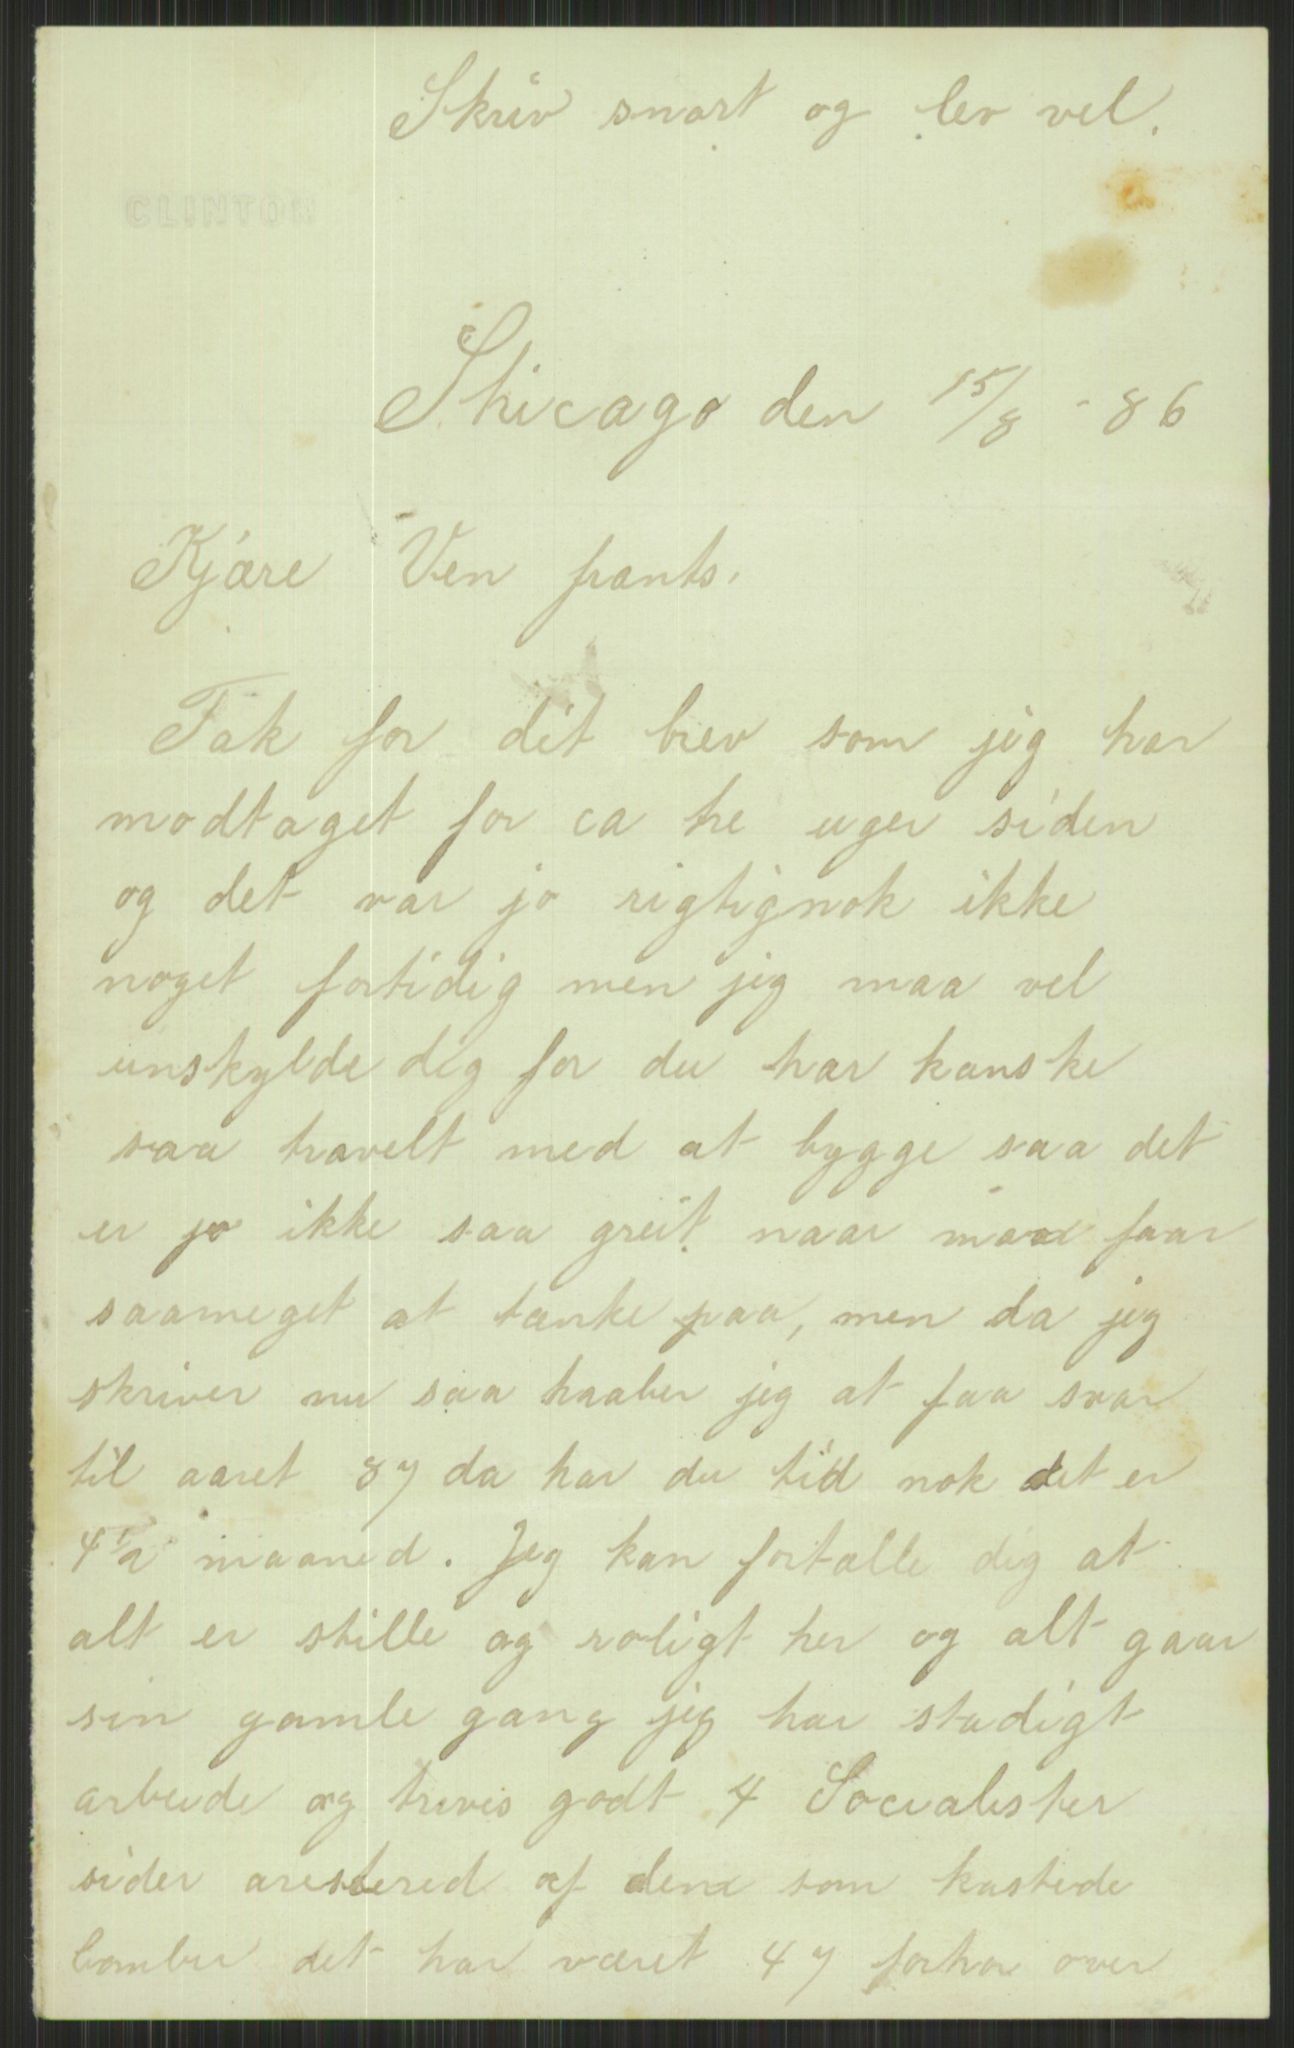 Skriv snart og lev vel.
CLINTON
Shicago den 15/8 - 86
Kjære Ven frants.
Tak for dit brev som jeg har
modtaget for ca tre uger siden
og det var jo rigtignok ikke
noget fortidig men jeg maa vel
unskylde dig for du har kanske
saa travelt med at bygge saa det
er jo ikke saa greit naar man faar
saameget at tænke paa, men da jeg
skriver nu saa haaber jeg at faa svar
til aaret 87 da har du tid nok det er
4 1/2 maaned. Jeg kan fortælle dig at
alt er stille og roligt her og alt gaar
sin gamle gang jeg har stadigt
arbeide og trives godt 4 Socialister
sider arestered af dem som kastede
bomber det har været 47 forhør over